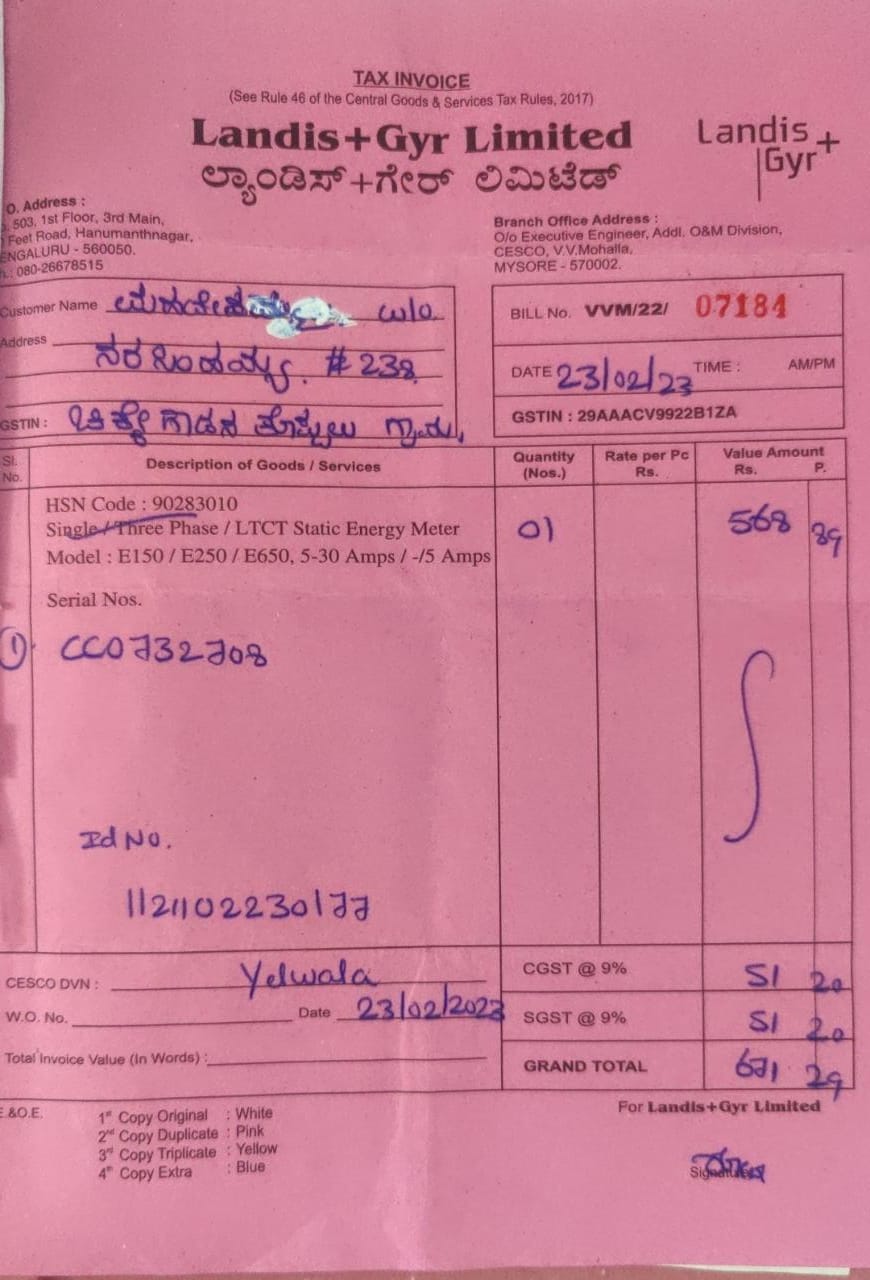 TAX INVOICE
(See Rule 46 of the Central Goods & Services Tax Rules, 2017)
Landis+Gyr Limited
ಲ್ಯಾಂಡಿಸ್+ಗೇರ್ ಲಿಮಿಟೆಡ್
Landis+
Gyr
O. Address :
503, 1st Floor, 3rd Main,
Feet Road, Hanumanthnagar,
ENGALURU - 560050.
080-26678515
Branch Office Address :
O/o Executive Engineer, Addl. O&M Division,
CESCO, V.V.Mohalla,
MYSORE - 570002.
Customer Name w/o
Address # 238
GSTIN :
BILL No. VVM/22/ 07184
DATE 23/02/23 TIME : AM/PM
GSTIN : 29AAACV9922B1ZA
Sl. No. Description of Goods / Services Quantity (Nos.) Rate per Pc Rs. Value Amount Rs. P.
HSN Code : 90283010
Single / Three Phase / LTCT Static Energy Meter 01 568 89
Model : E150 / E250 / E650, 5-30 Amps / -/5 Amps
Serial Nos.
1 CC0732708
Id No.
CESCO DVN : Yelwala
CGST @ 9% 51 20
W.O. No. Date 23/02/2023
SGST @ 9% 51 20
Total Invoice Value (In Words) :
GRAND TOTAL 671 29
E.&O.E.
For Landis+Gyr Limited
1st Copy Original : White
2nd Copy Duplicate : Pink
3rd Copy Triplicate : Yellow
4th Copy Extra : Blue
Signature